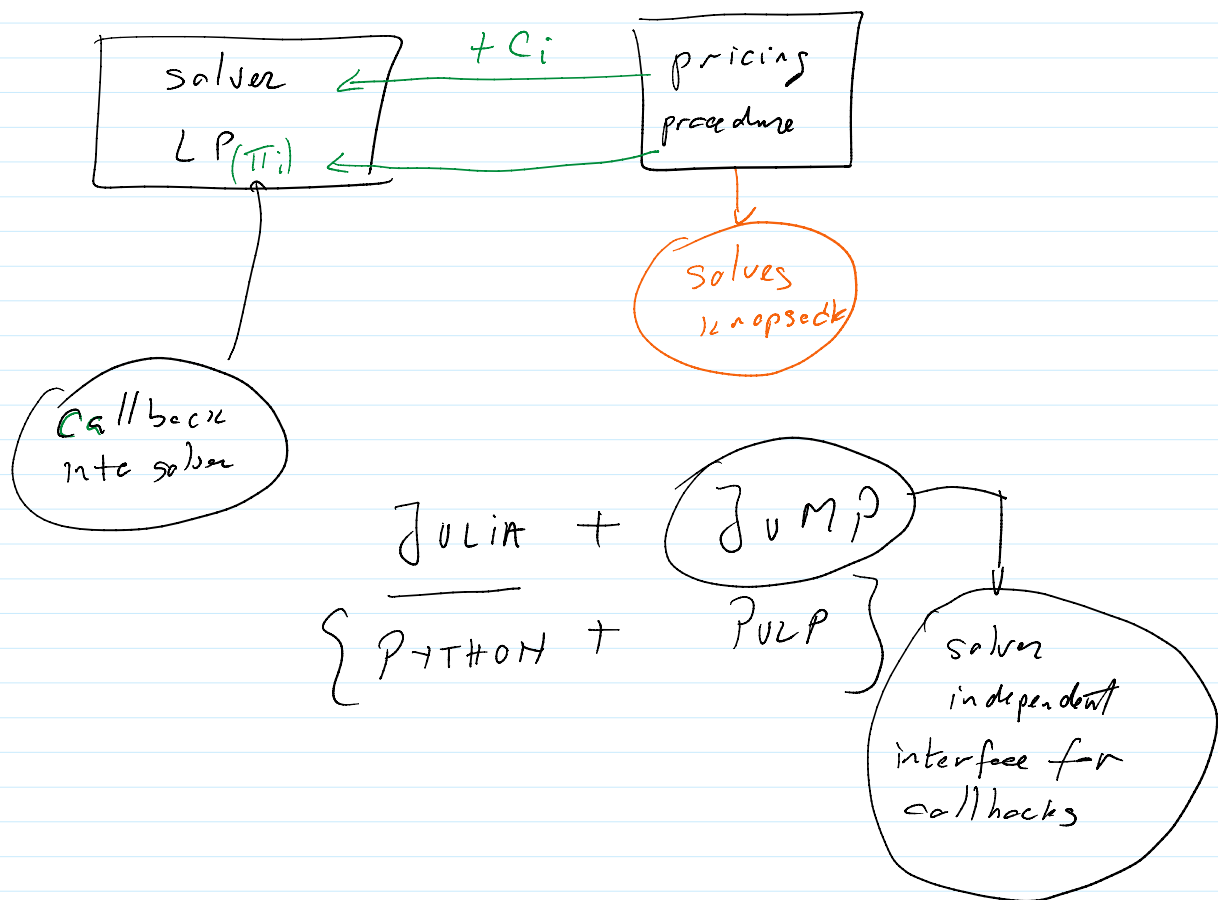 + Ci
solver
LP(πi)
pricing
procedure
solves
knapsack
callback
into solver
JULIA + JuMP
{ PYTHON + PULP }
solver
independent
interface for
callbacks